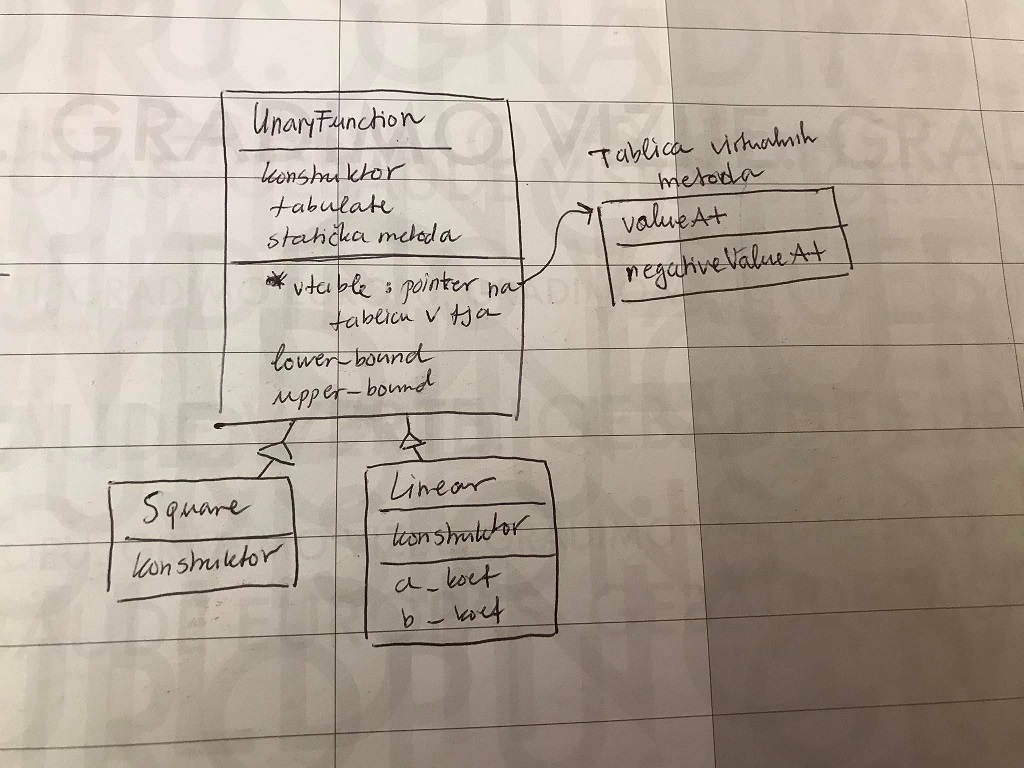 UnaryFunction
konstruktor
tabulate
statička metoda
* vtable : pointer na
tablicu v fja
lower_bound
upper_bound
Tablica virtualnih
metoda
valueAt
negativeValueAt
Square
konstruktor
Linear
konstruktor
a_koef
b_koef